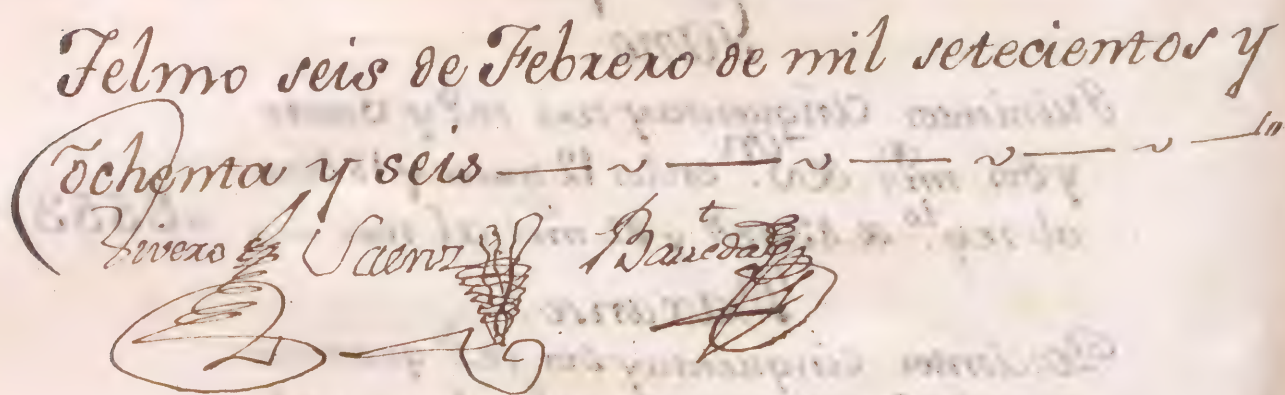 Telmo seis de Febrero de mil setecientos y
ochenta y seis
Rivero Saenz